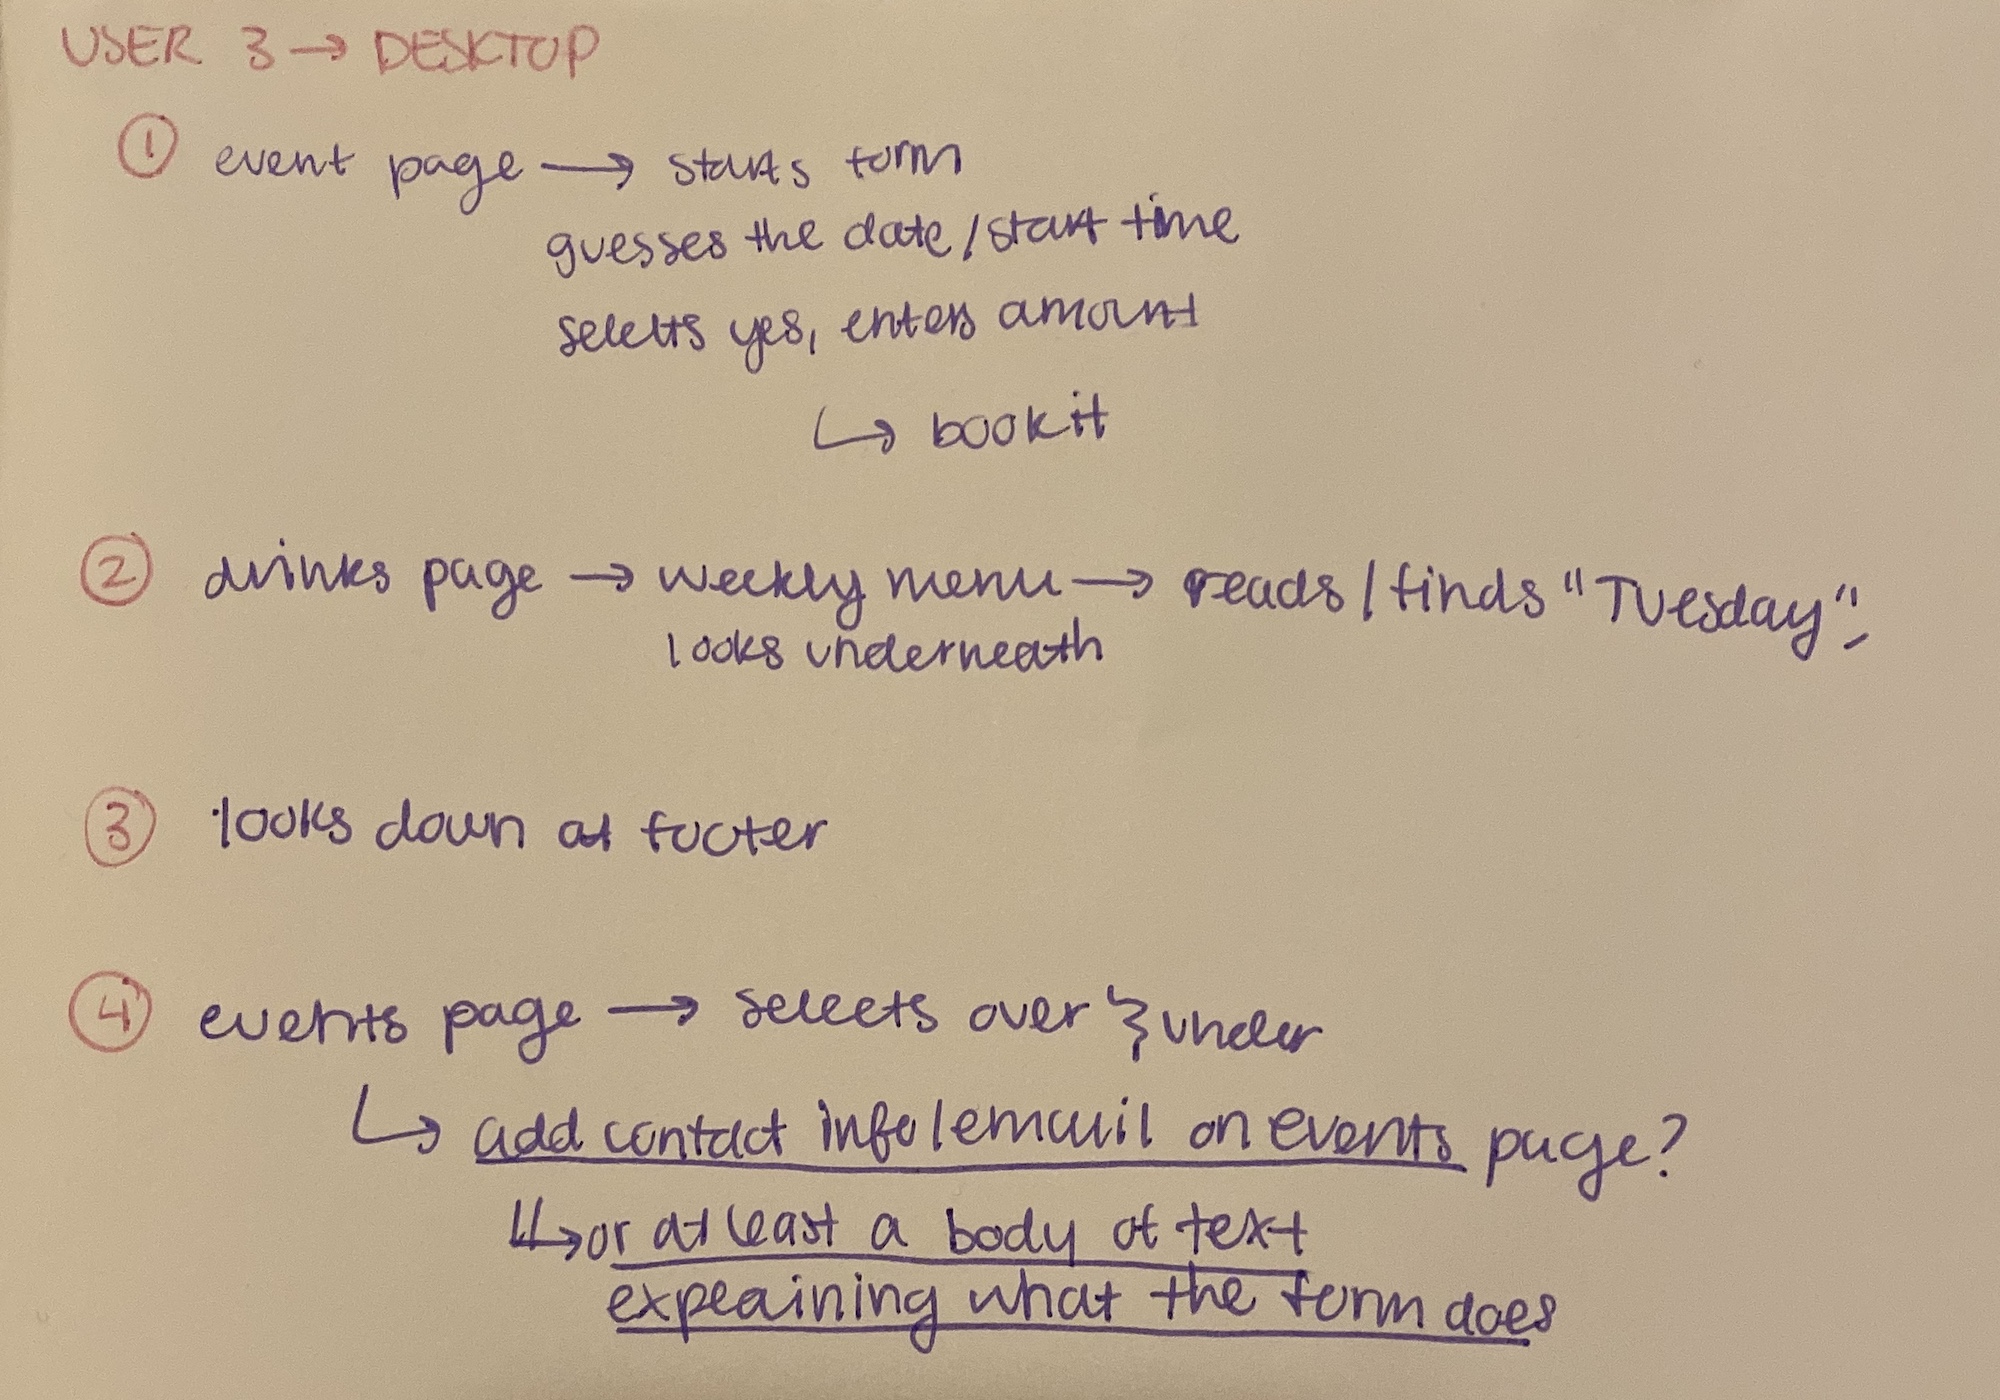 USER 3 → DESKTOP
① event page → starts form
guesses the date / start time
selects yes, enters amount
↳ book it
② drinks page → weekly menu → reads / finds "Tuesday"
looks underneath
③ looks down at footer
④ events page → selects over } under
↳ add contact info / email on events page?
↳ or at least a body of text
explaining what the form does